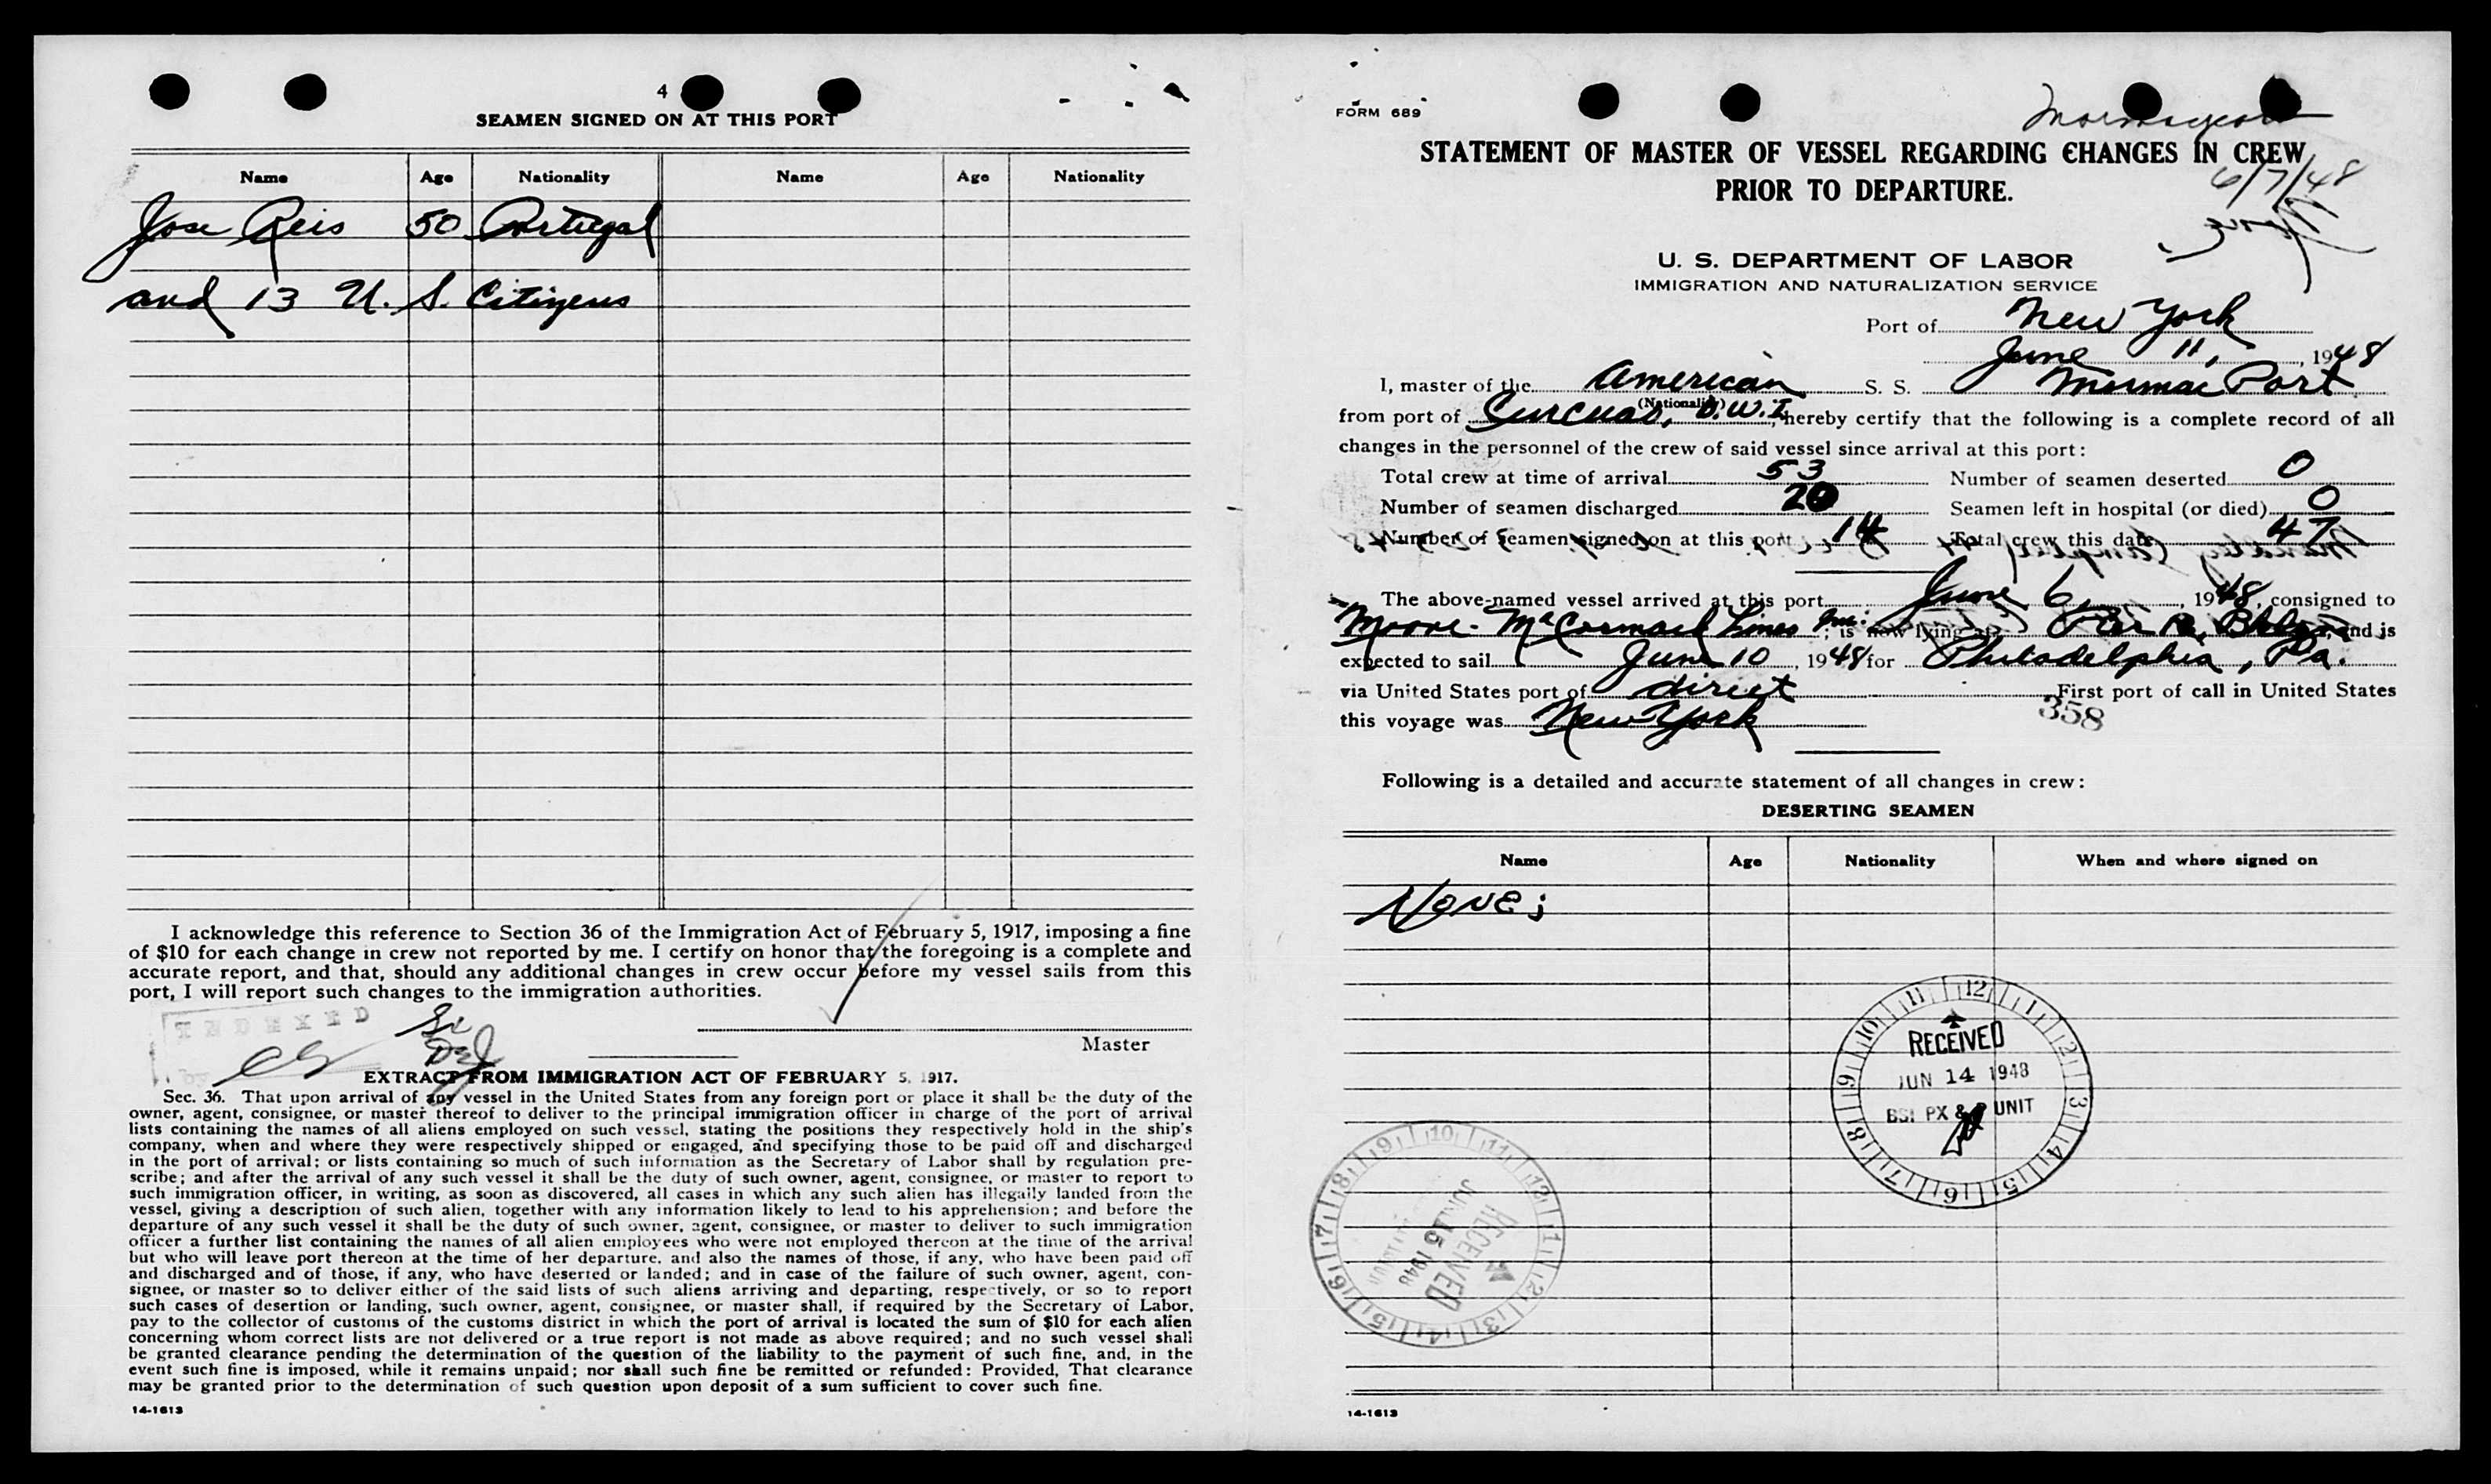 4
SEAMEN SIGNED ON AT THIS PORT
Name Age Nationality Name Age Nationality
Jose Reis 50 Portugal
and 13 U. S. Citizens
I acknowledge this reference to Section 36 of the Immigration Act of February 5, 1917, imposing a fine
of $10 for each change in crew not reported by me. I certify on honor that the foregoing is a complete and
accurate report, and that, should any additional changes in crew occur before my vessel sails from this
port, I will report such changes to the immigration authorities.
INDEXED
by
Master
EXTRACT FROM IMMIGRATION ACT OF FEBRUARY 5, 1917.
Sec. 36. That upon arrival of any vessel in the United States from any foreign port or place it shall be the duty of the
owner, agent, consignee, or master thereof to deliver to the principal immigration officer in charge of the port of arrival
lists containing the names of all aliens employed on such vessel, stating the positions they respectively hold in the ship's
company, when and where they were respectively shipped or engaged, and specifying those to be paid off and discharged
in the port of arrival; or lists containing so much of such information as the Secretary of Labor shall by regulation pre-
scribe; and after the arrival of any such vessel it shall be the duty of such owner, agent, consignee, or master to report to
such immigration officer, in writing, as soon as discovered, all cases in which any such alien has illegally landed from the
vessel, giving a description of such alien, together with any information likely to lead to his apprehension; and before the
departure of any such vessel it shall be the duty of such owner, agent, consignee, or master to deliver to such immigration
officer a further list containing the names of all alien employees who were not employed thereon at the time of the arrival
but who will leave port thereon at the time of her departure, and also the names of those, if any, who have been paid off
and discharged and of those, if any, who have deserted or landed; and in case of the failure of such owner, agent, con-
signee, or master so to deliver either of the said lists of such aliens arriving and departing, respectively, or so to report
such cases of desertion or landing, such owner, agent, consignee, or master shall, if required by the Secretary of Labor,
pay to the collector of customs of the customs district in which the port of arrival is located the sum of $10 for each alien
concerning whom correct lists are not delivered or a true report is not made as above required; and no such vessel shall
be granted clearance pending the determination of the question of the liability to the payment of such fine, and, in the
event such fine is imposed, while it remains unpaid; nor shall such fine be remitted or refunded: Provided, That clearance
may be granted prior to the determination of such question upon deposit of a sum sufficient to cover such fine.
14-1613
FORM 689
STATEMENT OF MASTER OF VESSEL REGARDING CHANGES IN CREW
PRIOR TO DEPARTURE.
6/7/48
U. S. DEPARTMENT OF LABOR
IMMIGRATION AND NATURALIZATION SERVICE
Port of New York
June 11, 1948
I, master of the American S. S. Mormac Port
(Nationality)
from port of D.W.I., hereby certify that the following is a complete record of all
changes in the personnel of the crew of said vessel since arrival at this port:
Total crew at time of arrival 53 Number of seamen deserted 0
Number of seamen discharged 20 Seamen left in hospital (or died) 0
Number of seamen signed on at this port 14 Total crew this date 47
The above-named vessel arrived at this port June 6, 1948, consigned to
Moore-McCormack Lines Inc.; is now lying at Bklyn, and is
expected to sail June 10, 1948 for Philadelphia, Pa.
via United States port of direct First port of call in United States
this voyage was New York
358
Following is a detailed and accurate statement of all changes in crew:
DESERTING SEAMEN
Name Age Nationality When and where signed on
None;
RECEIVED
JUN 14 1948
BSI PX & UNIT
RECEIVED
JUN 15 1948
14-1613